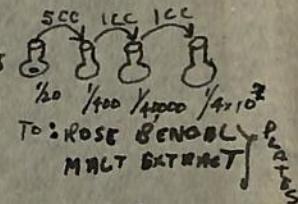 5CC 1CC 1CC
1/20 1/400 1/40,000 1/4x10⁷
TO: ROSE BENGAL
MALT EXTRACT
PLATES